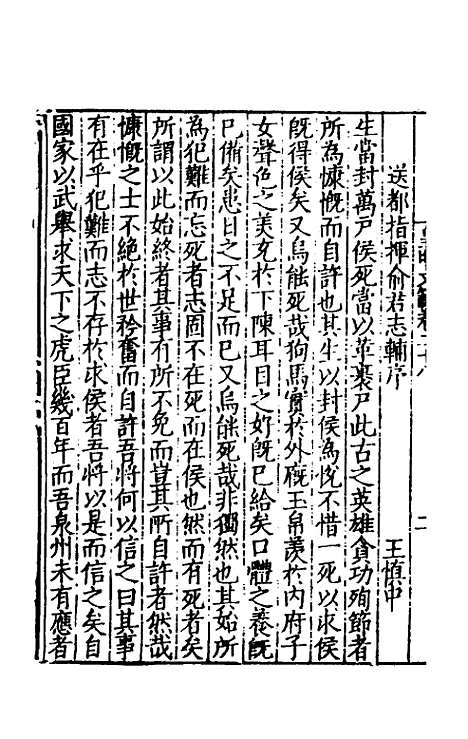 送都指揮俞君志輔序
王慎中
生當封萬戶侯死當以革裹尸此古之英雄貪功殉節者
所為慷慨而自許也其生以封侯為悅不惜一死以求侯
既得侯矣又烏能死哉狗馬實於外廐玉帛羨於內府子
女聲色之美充於下陳耳目之好既已給矣口體之養既
已備矣患日之不足而已又烏能死哉非獨然也其始所
為犯難而忘死者志固不在死而在侯也然而有死者矣
所謂以此始終者其事有所不免而豈其所自許者然哉
慷慨之士不絕於世矜奮而自許吾將何以信之曰其事
有在乎犯難而志不存於求侯者吾將以是而信之矣自
國家以武舉求天下之虎臣幾百年而吾泉州未有應者